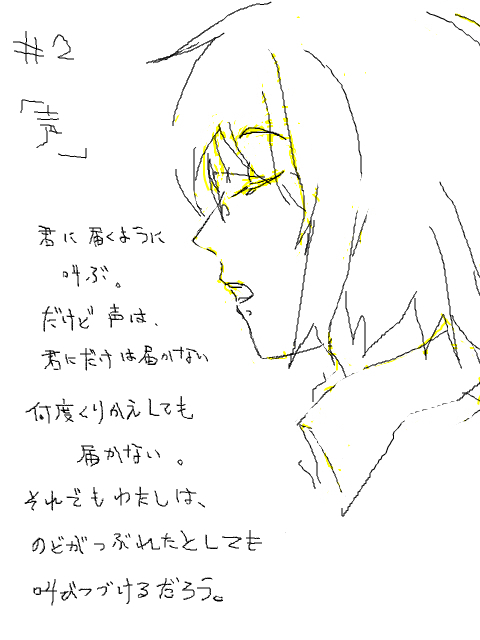 #2
「声」
君に届くように
叫ぶ。
だけど声は、
君にだけは届かない
何度くりかえしても
届かない。
それでもわたしは、
のどがつぶれたとしても
叫びつづけるだろう。